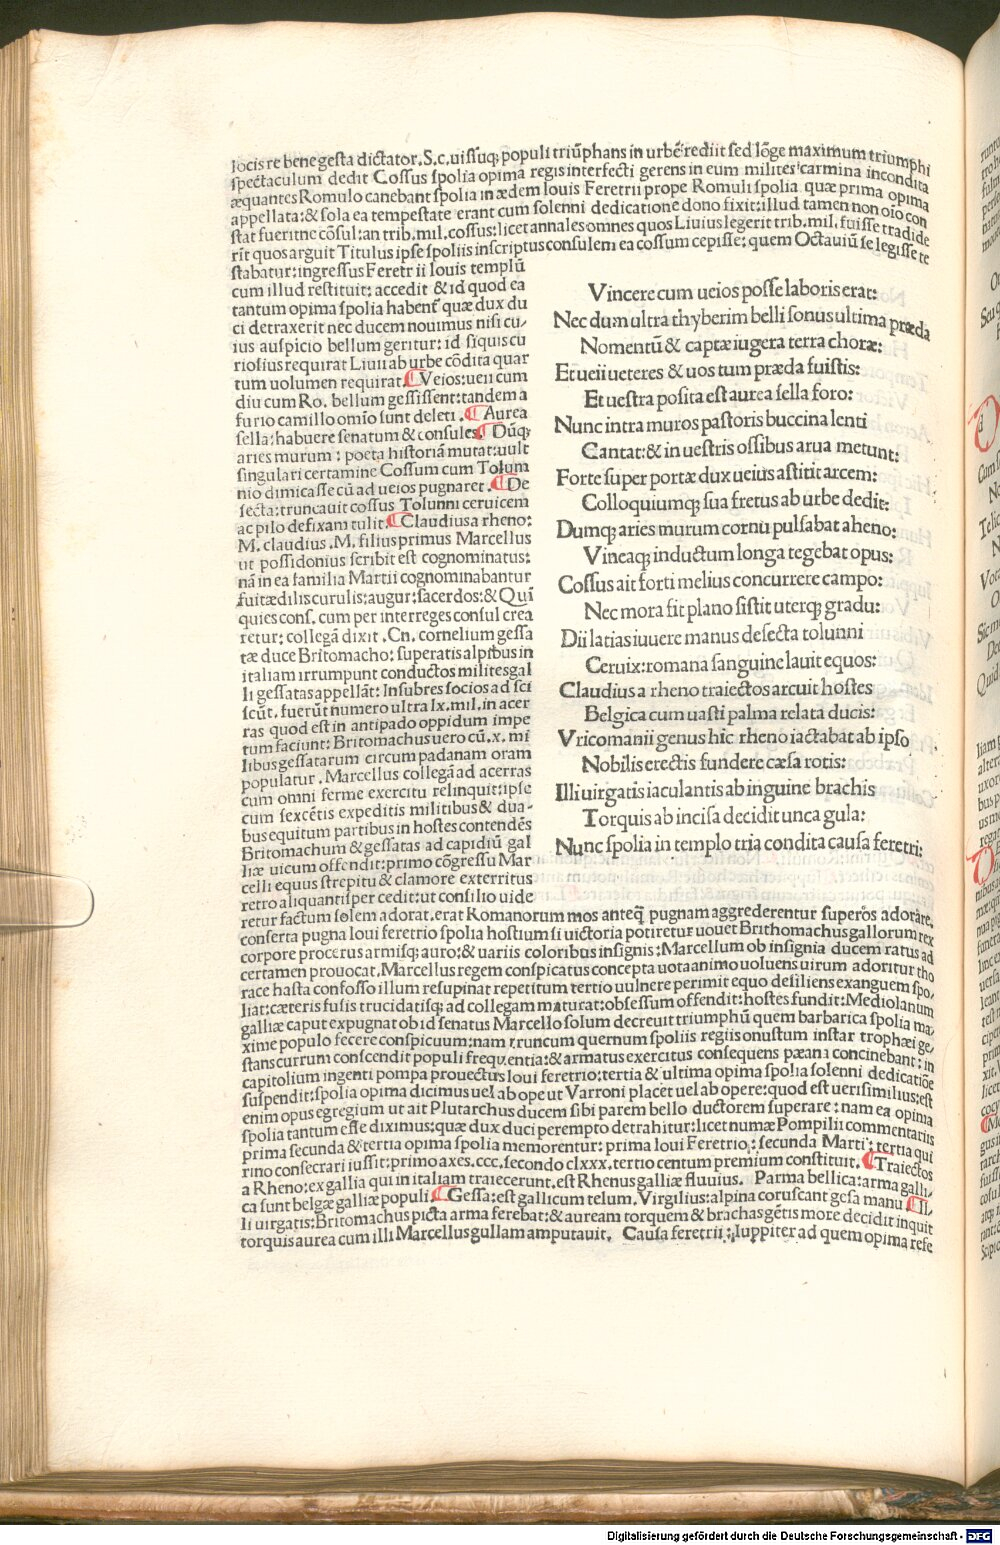 locis re bene gesta dictator.S.c.uisſuqꝫ populi triūphans in urbē rediit sed lōge maximum triumphi
ſpectaculum dedit Coſſus ſpolia opima regis interfecti gerens in eum milites carmina incondita
æquantes Romulo canebant ſpolia in ædem Iouis Feretrii prope Romuli ſpolia quæ prima opima
appellata:& ſola ea tempeſtate erant cum ſolenni dedicatione dono fixit:illud tamen non oīo con
ſtat fueritne cōſul:an trib.mil.coſſus:licet annales omnes quos Liuius legerit trib.mil.fuiſſe tradide
rīt quos arguit Titulus ipſe ſpoliis inſcriptus conſulem ea coſſum cepiſſe:quem Octauiū ſe legiſſe te
ſtabatur:ingreſſus Feretrii Iouis templū
cum illud reſtituit: accedit & id quod ea
tantum opima ſpolia habent quæ dux du
ci detraxerit nec ducem nouimus niſi cu/
ius auſpicio bellum geritur: id ſi quis cu
rioſius requirat Liuii ab urbe cōdita quar
tum uolumen requirat. Veios:ueii cum
diu cum Ro. bellum geſſiſſent:tandem a
furio camillo omīo ſunt deleti. Aurea
ſella:habuere ſenatum & conſules. Dūqꝫ
aries murum: poeta hiſtoriā mutat:uult
ſingulari certamine Coſſum cum Tolum
nio dimicaſſe cū ad ueios pugnaret. De
ſecta:truncauit coſſus Tolunni ceruicem
ac pilo defixam tulit. Claudius a rheno:
M. claudius .M. filius primus Marcellus
ut poſſidonius ſcribit eſt cognominatus:
nā in ea familia Martii cognominabantur
fuit ædilis curulis:augur:ſacerdos:& Quī
quies conſ. cum per interreges conſul crea
retur: collegā dixit .Cn. cornelium geſſa
tæ duce Britomacho: ſuperatis alpibus in
italiam irrumpunt conductos milites gal
li geſſatas appellāt: Inſubres ſocios ad ſci
ſcūt. fuerūt numero ultra lx.mil.in acer
ras quod eſt in antipado oppidum impe
tum faciunt: Britomachus uero cū.x. mi
libus geſſatarum circum padanam oram
populatur. Marcellus collegā ad acerras
cum omni ferme exercitu relinquit:ipſe
cum ſexcētis expeditis militibus & dua-
bus equitum partibus in hoſtes contendēs
Britomachum & geſſatas ad capidiū gal
liæ uicum offendit: primo cōgreſſu Mar
celli equus ſtrepitu & clamore exterritus
retro aliquantiſper cedit:ut conſilio uide
retur factum ſolem adorat.erat Romanorum mos anteqꝫ pugnam aggrederentur ſuperos adorare.
conſerta pugna Ioui feretrio ſpolia hoſtium ſi uictoria potiretur uouet Brithomachus gallorum rex
corpore procerus armiſqꝫ auro:& uariis coloribus inſignis:Marcellum ob inſignia ducem ratus ad
certamen prouocat.Marcellus regem conſpicatus concepta uota animo uoluens uirum adoritur tho
race haſta confoſſo illum reſupinat repetitum tertio uulnere perimit equo deſiliens exanguem ſpo,
liat:cæteris fuſis trucidatiſqꝫ ad collegam maturat:obſeſſum offendit:hoſtes fundit:Mediolanum
galliæ caput expugnat ob id ſenatus Marcello ſolum decreuit triumphū quem barbarica ſpolia ma/
xime populo fecere conſpicuum:nam truncum quernum ſpoliis regiis onuſtum inſtar trophæi ge/
ſtans currum conſcendit populi frequentia:& armatus exercitus conſequens pæana concinebant:in
capitolium ingenti pompa prouectus Ioui feretrio:tertia & ultima opima ſpolia ſolenni dedicatiōe
ſuſpendit:ſpolia opima dicimus uel ab ope ut Varroni placet uel ab opere:quod eſt ueriſimilius:eſt
enim opus egregium ut ait Plutarchus ducem ſibi parem bello ductorem ſuperare:nam ea opima
ſpolia tantum eſſe diximus:quæ dux duci perempto detrahitur:licet numæ Pompilii commentariis
prima ſecunda & tertia opima ſpolia memorentur: prima Ioui Feretrio: ſecunda Marti: tertia qui
rino conſecrari iuſſit:primo axes.ccc.ſecondo clxxx.tertio centum premium conſtituit. Traiectos
a Rheno:ex gallia qui in italiam traiecerunt.eſt Rhenus galliæ fluuius. Parma bellica:arma galli/
ca ſunt belgæ galliæ populi. Geſſa:eſt gallicum telum.Virgilius:alpina coruſcant geſa manu Il/
li uirgatis:Britomachus picta arma ferebat:& auream torquem & brachas gētis more decidit inquit
torquis aurea cum illi Marcellus gullam amputauit. Cauſa feretrii:Iuppiter ad quem opima refe
Vincere cum ueios poſſe laboris erat:
Nec dum ultra thyberim belli ſonus ultima præda
Nomentū & captæ iugera terra choræ:
Et ueii ueteres & uos tum præda fuiſtis:
Et ueſtra poſita eſt aurea ſella foro:
Nunc intra muros paſtoris buccina lenti
Cantat:& in ueſtris oſſibus arua metunt:
Forte ſuper portæ dux ueius aſtitit arcem:
Colloquiumqꝫ ſua fretus ab urbe dedit:
Dumqꝫ aries murum cornu pulſabat aheno:
Vineaqꝫ inductum longa tegebat opus:
Coſſus ait forti melius concurrere campo:
Nec mora fit plano ſiſtit uterqꝫ gradu:
Dii latias iuuere manus deſecta tolunni
Ceruix:romana ſanguine lauit equos:
Claudius a rheno traiectos arcuit hoſtes
Belgica cum uaſti palma relata ducis:
Vricomanii genus hic rheno iactabat ab ipſo
Nobilis erectis fundere cæſa rotis:
Illi uirgatis iaculantis ab inguine brachis
Torquis ab inciſa decidit unca gula:
Nunc ſpolia in templo tria condita cauſa feretri:
Digitalisierung gefördert durch die Deutsche Forschungsgemeinschaft - DFG